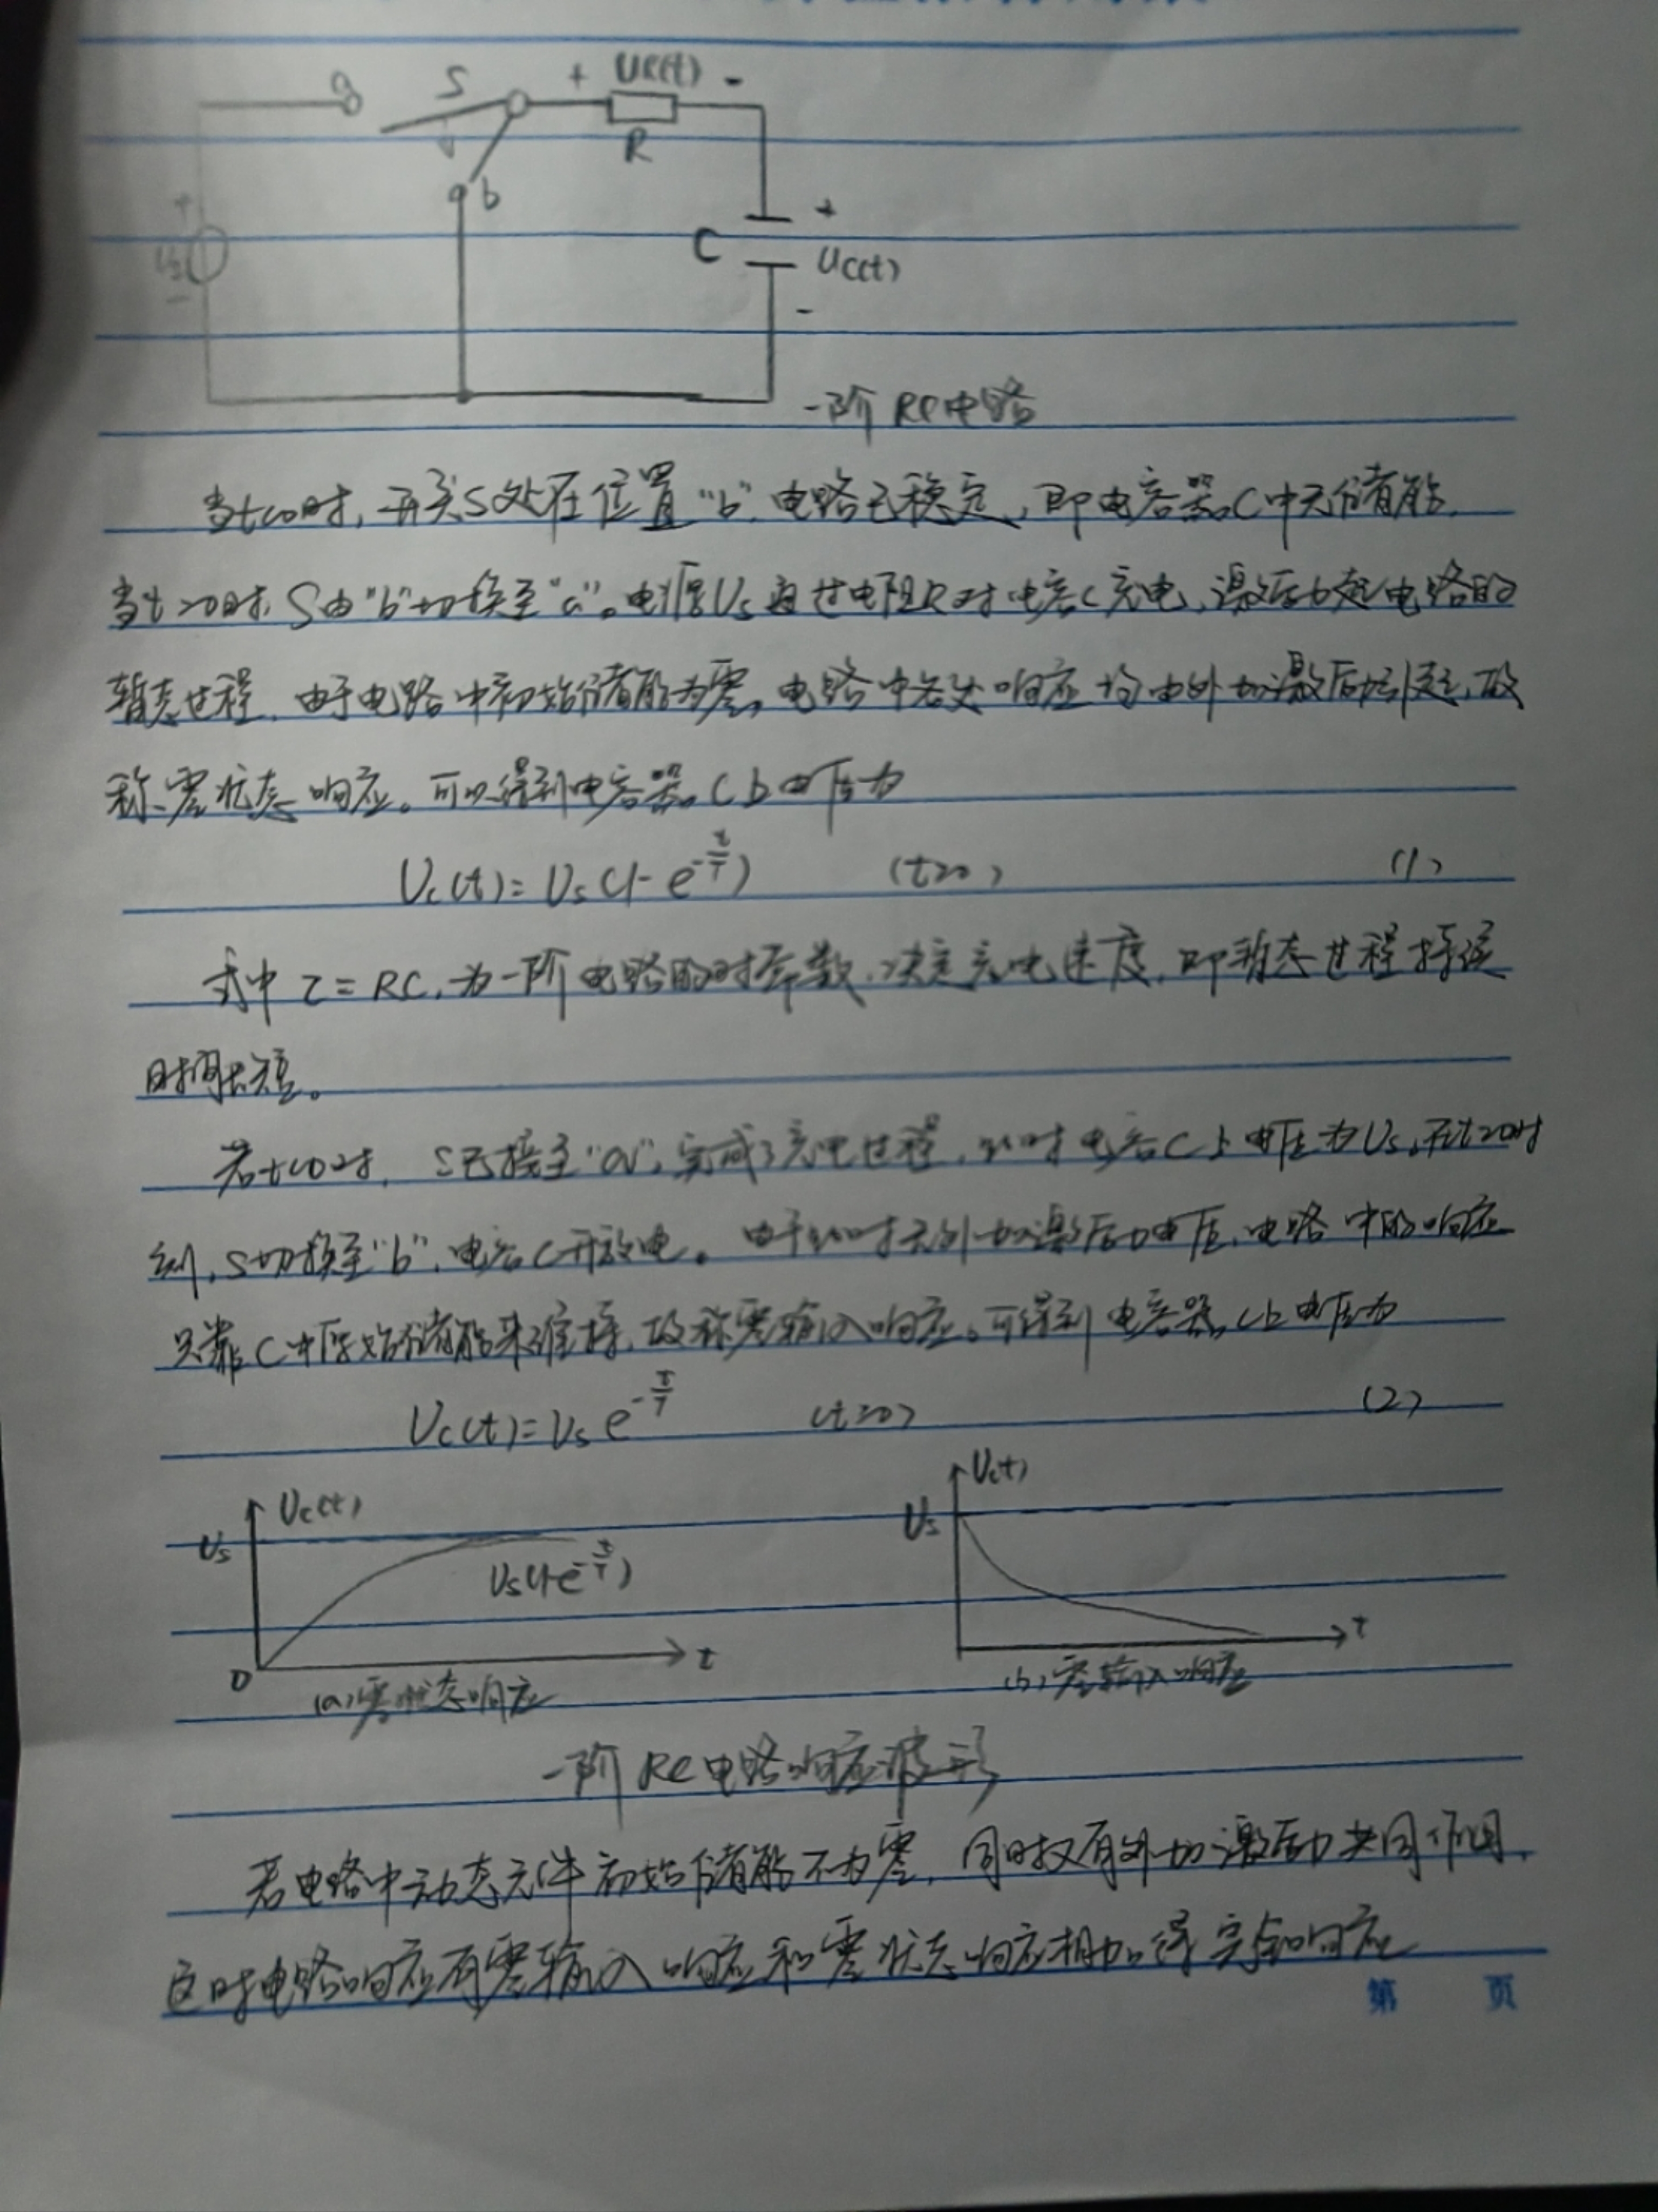 a
S
+ UR(t) -
R
b
+
Us
-
+
C
Uc(t)
-
一阶RC电路
当t<0时,开关S处在位置"b",电路已稳定,即电容器C中无储能.
当t>0时,S由"b"切换至"a"。电源Us通过电阻R对电容C充电,激励起电路的
暂态过程,由于电路中初始储能为零。电路中各处响应均由外加激励引起,故
称零状态响应。可以得到电容器C上电压为
Uc(t)=Us(1-e^{-t/τ}) (t≥0) (1)
式中τ=RC,为一阶电路的时常数,决定充电速度,即暂态过程持续
时间长短。
若t<0时,S已接至"a",完成了充电过程,此时电容C上电压为Us,在t≥0时
刻,S切换至"b",电容C开放电。由于此时无外加激励电压,电路中的响应
只靠C中原始储能来维持,故称零输入响应。可得到电容器C上电压为
Uc(t)=Us e^{-t/τ} (t≥0) (2)
Uc(t)
Us
Us(1-e^{-t/τ})
0
t
(a)零状态响应
Uc(t)
Us
t
(b)零输入响应
一阶RC电路响应波形
若电路中动态元件初始储能不为零,同时又有外加激励共同作用,
这时电路响应有零输入响应和零状态响应相加得完全响应
第 页